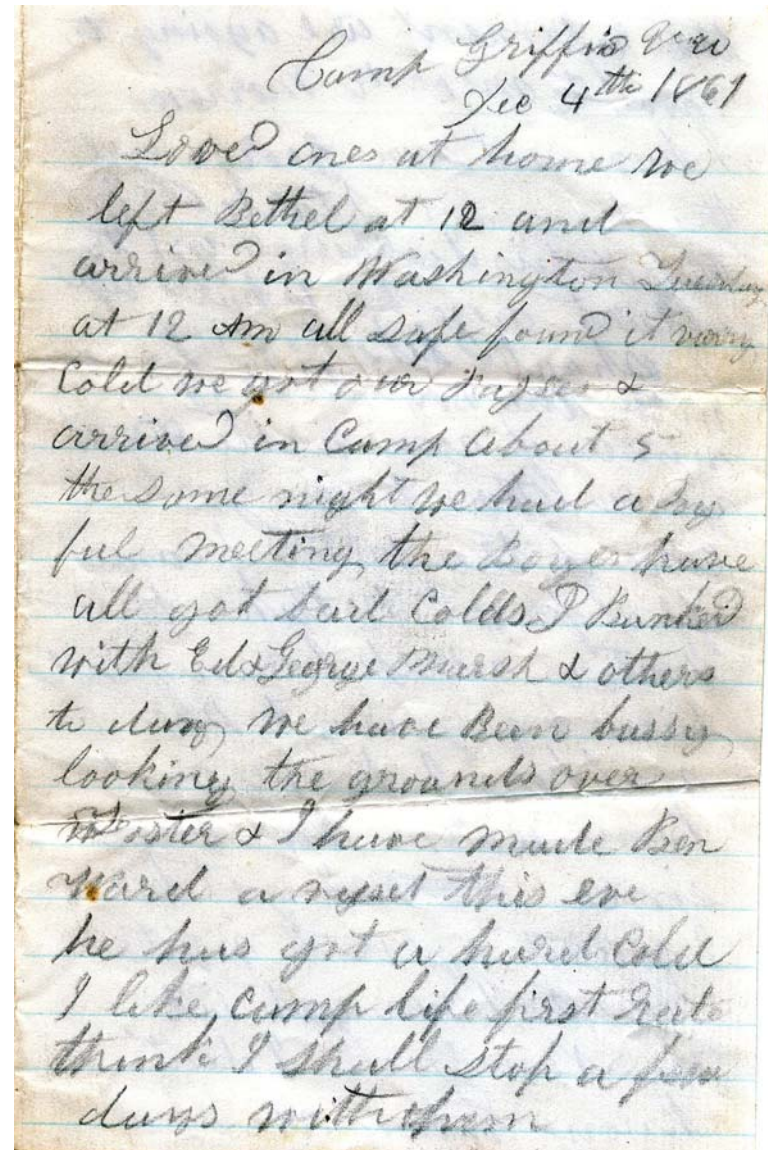 Camp Griffin
Dec 4th 1861
Loved ones at home we
left Bethel at 12 and
arrived in Washington Tuesday
at 12 Am all safe found it varry
Cold we got our passes &
arrived in Camp about 5
the same night we had a joy
ful meeting the Boyes have
all got bad Colds I Bunked
with Ed & George Marsh & others
to day we have Been bussy
looking the grounds over
& I have made Ben
Ward a this eve
he has got a hard Cold
I like camp life first rate
think I shall stop a few
days with them